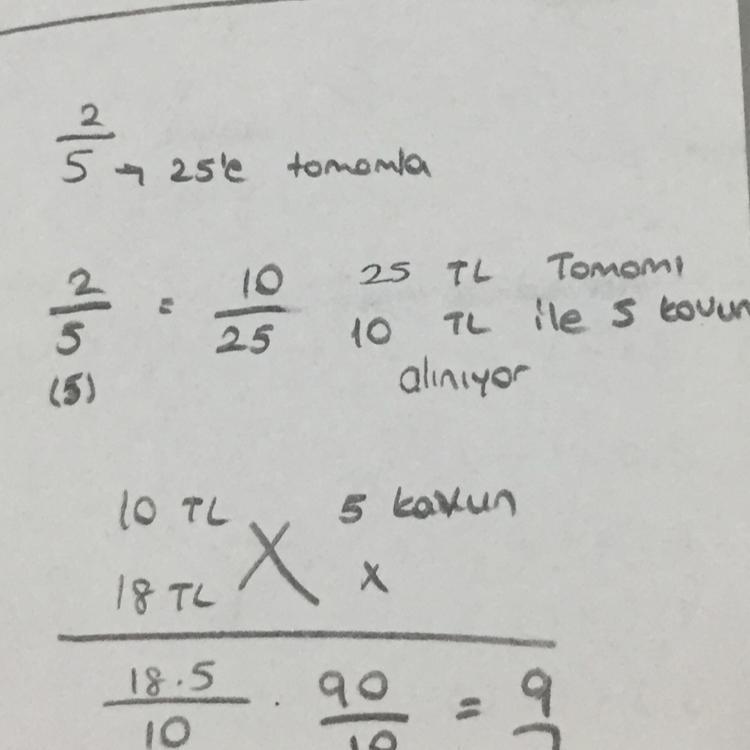 2/5 → 25'e tamamla
2/5 = 10/25 25 TL Tamamı
(5) 10 TL ile 5 kavun
alınıyor
10 TL 5 kavun
18 TL x
18.5/10 . 90/10 = 9